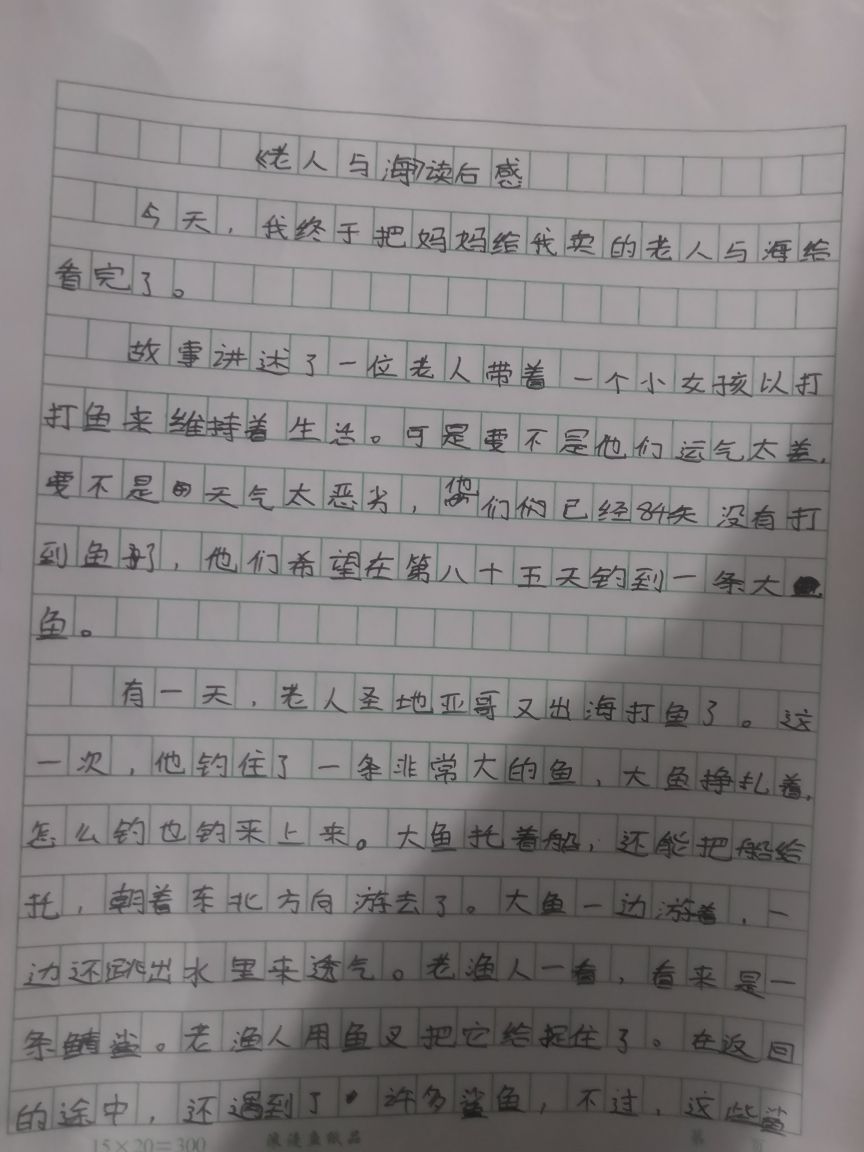 《老人与海》读后感
今天，我终于把妈妈给我卖的老人与海给
看完了。
故事讲述了一位老人带着一个小女孩以打
打鱼来维持着生活。可是要不是他们运气太差，
要不是天气太恶劣，他们们已经84天没有打
到鱼了，他们希望在第八十五天钓到一条大
鱼。
有一天，老人圣地亚哥又出海打鱼了。这
一次，他钓住了一条非常大的鱼，大鱼挣扎着，
怎么钓也钓采上来。大鱼托着船，还能把船给
托，朝着东北方向游去了。大鱼一边游着，一
边还跳出水里来透气。老渔人一看，看来是一
条鲭鲨。老渔人用鱼叉把它给捉住了。在返回
的途中，还遇到了许多鲨鱼，不过，这些鲨
15×20=300